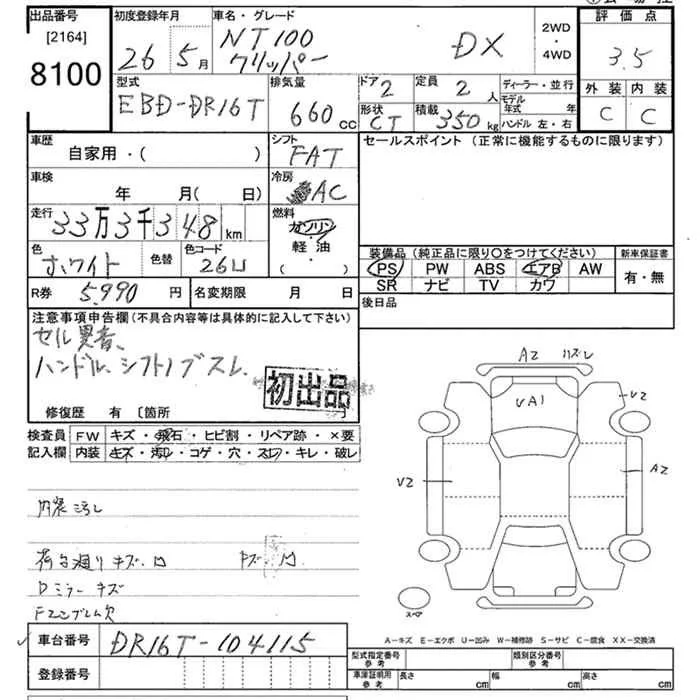 出品番号 初度登録年月 車名・グレード 2WD 評価点
[2164] NT100 DX ・ 3.5
8100 26 5月 クリッパー 4WD
型式 排気量 ドア 定員 ディーラー・並行 外装 内装
EBD-DR16T 660cc 2 2人 モデル年式 年 C C
形状 積載 ハンドル 左・右
CT 350kg
車歴 シフト セールスポイント (正常に機能するものに限ります)
自家用・( ) FAT
車検 冷房
年 月( 日) AC
走行 燃料
33万3千348km ガソリン
軽・油
・( )
色 色替 色コード 装備品 (純正品に限り○をつけてください) 新車保証書
ホワイト 26U PS PW ABS エアB AW 有・無
SR ナビ TV カワ
R券 5,990円 名変期限 月 日 後日品
注意事項申告欄(不具合内容等は具体的に記入して下さい)
セル異音、
ハンドル、シフトノブスレ、
初出品
修復歴 有 [箇所
検査員 FW キズ・飛石・ヒビ割・リペア跡・×要
記入欄 内装 キズ・汚レ・コゲ・穴・スレ・キレ・破レ
内装汚レ
荷台廻りキズ、凹
Dミラーキズ
Fエンブレム欠
A2 ハズレ
UA1
U2
U2
A2
スペア
A-キズ E-エクボ U-凹み W-補修跡 S-サビ C-腐食 XX-交換済
車台番号 DR16T-104115
登録番号
型式指定番号 参考 類別区分番号 参考
車庫証明用 参考 長さ cm 幅 cm 高さ cm